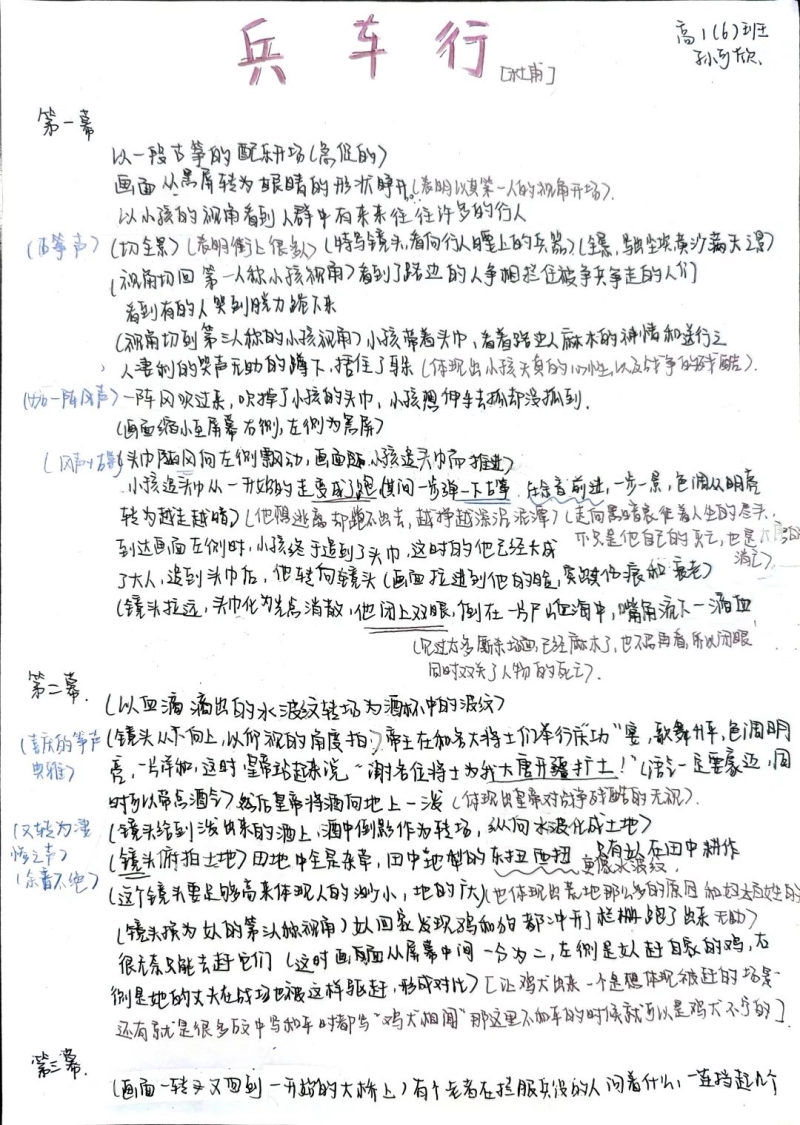 兵车行
[杜甫]
高1(6)班
孙可欣
第一幕
以一段古筝的配乐开场(急促的)
画面从黑屏转为眼睛的形状睁开。(表明以其第一人的视角开场)。
以小孩的视角看到人群中有来来往往许多的行人
(古筝声)(切全景)(表明街上很多人)(特写镜头,看向行人腰上的兵器)(全景,尘埃黄沙满天)
(视角切回第一人称小孩视角)看到了路边的人争相拦住被争兵争走的人们
看到有的人哭到脱力跪下来
(视角切到第三人称的小孩视角)小孩带着头巾,看着路上人麻木的神情和送行之
人凄利的哭声无助的蹲下,捂住了耳朵(体现出小孩天真的心性,以及战争的残酷)。
(加一阵风声)一阵风吹过来,吹掉了小孩的头巾,小孩想伸手去抓却没抓到.
(画面缩小至屏幕右侧,左侧为黑屏)
(风声+古筝)(头巾随风向左侧飘动,画面随小孩追头巾而推进)
小孩追头巾从一开始的走变成了跑(其间一步弹一下古筝,与余音前进,一步一景,色调从明亮
转为越走越暗)(他想逃离却跑不出去,越挣越深沉泥潭)(走向黑暗意味着人生的尽头,
不只是他自己的死亡,也是大唐的
消亡)
到达画面左侧时,小孩终于追到了头巾,这时的他已经长成
了大人,追到头巾后,他转向镜头(画面拉进到他的脸,突出伤痕和衰老)
(镜头拉远,头巾化为光点消散,他闭上双眼,倒在一片尸山血海中,嘴角流下一滴血
(见过太多厮杀场面,已经麻木了,也不忍再看,所以闭眼
同时双关了人物的死亡).
第二幕.
(以血滴滴出的水波纹转场为酒杯中的波纹)
(喜庆的筝声
典雅)
(镜头从下向上,以仰视的角度拍)帝王在和各大将士们举行庆功"宴,歌舞升平,色调明
亮,一片祥和,这时皇帝站起来说"谢各位将士为我大唐开疆扩土!"(语气一定要豪迈,同
时可以带点酒气)然后皇帝将酒向地上一泼(体现出皇帝对战争残酷的无视).
(又转为凄
惨之声)
(余音不绝)
(镜头给到泼出来的酒上,酒中倒影作为转场,纵向水波化成土地)
(镜头俯拍土地)田地中全是杂草,田中地犁的东扭西扭 只有妇在田中耕作
更像水波纹.
(这个镜头要足够高来体现人的渺小,地的广大)(也体现出荒地那么多的原因和老百姓的
无助)
(镜头换为女人的第三人称视角)女人回家发现鸡和狗都冲开了栏栅跑了出来
很无奈只能去赶它们(这时画面从屏幕中间一分为二,左侧是女人赶自家的鸡,右
侧是她的丈夫在战场也被这样驱赶,形成对比)[让鸡犬出来一个是想体现被赶的场景
还有就是很多文中写和平时都写"鸡犬相闻"那这里不和平的时候就可以是鸡犬不宁的]
第三幕.
(画面一转又回到一开始的大桥上)有个老者在拦服兵役的人问着什么,一连挡起几个